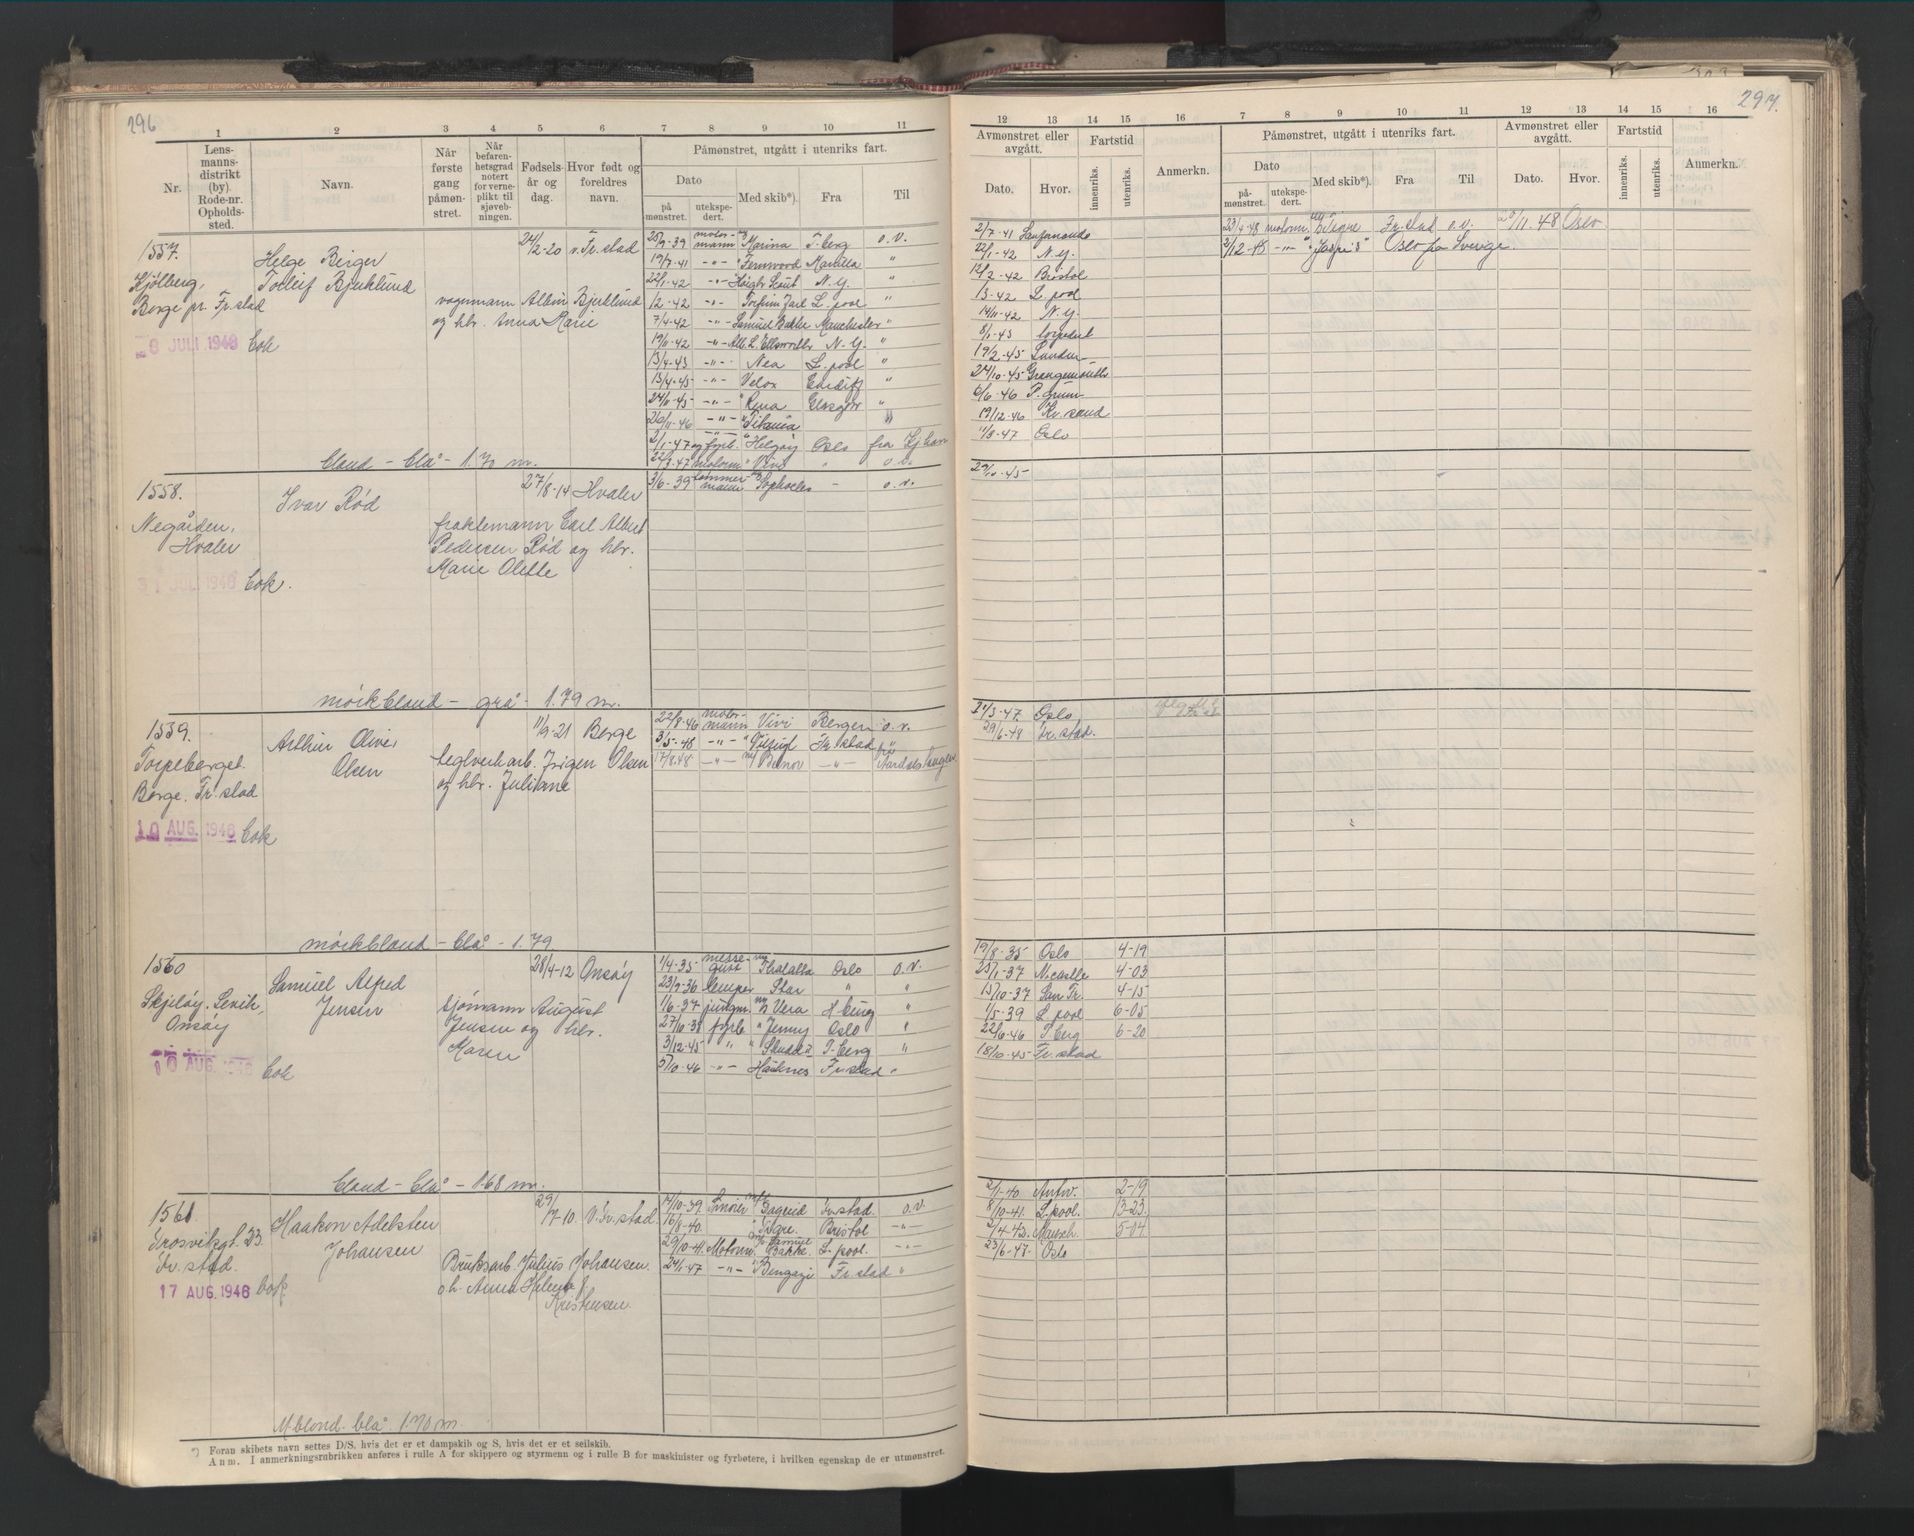 296
1
2
3
4
5
6
7
8
9
10
11
Nr.
Lens-
manns-
distrikt
(by).
Rode-nr.
Opholds-
sted.
Navn.
Når
første
gang
påmøn-
stret.
Når
befaren-
hetsgrad
notert
for verne-
plikt til
sjøveb-
ningen.
Fødsels-
år og
dag.
Hvor født og
foreldres
navn.
Påmønstret, utgått i utenriks fart.
Dato
på
mønstret.
utekspe-
dert.
Med skib*).
Fra
Til
1557.
Kjølberg,
Borge pr. Fr.stad
8 JULI 1948 Bok
Helge Birger
Torleif Bjuklund
24/2-20 v. Fr.stad
vognmann Albin Bjuklund
og hbr. Anna Marie
25/9-39 motor-mann Marina T-berg o.v.
19/7-41 -"- Fernwood Manilla "
22/1-42 -"- Høigh Scout N.Y. "
12/2-42 -"- Torfinn Jarl L.pool "
7/4-42 -"- Samuel Bakke Manchester "
19/11-42 -"- N.Y. "
13/4-43 -"- Nea L.pool "
13/4-45 -"- Velox Cardiff "
24/11-45 -"- Rena Glasgow "
26/11-46 -"- Titania "
2/1-47 og fyrb. Helgøy Oslo fra Kjhavn
22/3-47 motorm " Vivi " o.v.
bland - blå - 1.70 m.
1558.
Negården,
Hvaler
31 JULI 1948 Bok.
Ivar Rød
27/8-14 Hvaler
fraktemann Carl Albert
Pedersen Rød og hbr.
Marie Olette
3/6-39 tømmermann Sophocles - o.v.
mørkbland - grå - 1.79 m.
1559.
Torpeberget
Borge. Fr.stad
10 AUG. 1948 Bok
Arthur Oliver
Olsen
11/9-21 Borge
teglverkarb. Jørgen Olsen
og hbr. Juliane
22/8-46 motor-mann Vivi Bergen o.v.
3/5-48 -"- Fr.stad
17/8.48 -"- -"- Aardalstangen
mørkbland - blå - 1.79
1560
Skjeløy. Lervik,
Onsøy
10 AUG. 1948 Bok
Samuel Alfred
Jensen
28/4-12 Onsøy
sjømann August
Jensen og hbr.
Maren
1/4-35 messe-gutt Thalatta Oslo o.v.
23/9-36 lemper Star " "
1/6-37 jungm. Vera H-burg "
27/10-38 fyrb. " Jenny Oslo "
3/12-45 " " Skudd II T-berg "
5/10-46 -"- Haaknes Fr.stad "
bland - blå - 1.68 m.
1561
Trosvikgt. 23.
Fr.stad.
17 AUG. 1948 bok.
Haakon Adelsten
Johansen
29/7-10. V. Fr.stad.
Bruksarb. Julius Johansen.
o.h. Anna Helene f.
Kristensen.
14/10-39. Smører Fr.stad. o.v.
16/8-40. " Tigre. Bristol -"-
29/10-41. Motorm. Samuel Bakke L.pool. -"-
24/1-47 -"- Bengazi Fr.stad "
M.blond. blå. 1.70 m.
*) Foran skibets navn settes D/S, hvis det er et dampskib og S, hvis det er et seilskib.
Anm. I anmerkningsrubrikken anføres i rulle A for skippere og styrmenn og i rulle B for maskinister og fyrbøtere, i hvilken egenskap de er utmønstret.
297.
12
13
14
15
16
7
8
9
10
11
12
13
14
15
16
Avmønstret eller
avgått.
Fartstid
Dato.
Hvor.
innenriks.
utenriks.
Anmerkn.
Påmønstret, utgått i utenriks fart.
Dato
på-
mønstret.
utekspe-
dert.
Med skib*).
Fra
Til
Avmønstret eller
avgått.
Dato.
Hvor.
Fartstid
innenriks.
utenriks.
Anmerkn.
2/7-41 23/4-48 motorm. Fr.stad o.v. 20/11-48 Oslo
22/1-42 N.Y. 3/12-48 -"- "Jaspis" Oslo fra Sverige.
12/2-42 Bristol
13-42 L.pool
14/11-42 N.Y.
8/1-43 torpedert
19/2-45 London
24/10-45 Grangemouth
6/6-46 P.grunn
19/12-46 Kr.sand
11/3-47 Oslo
29/10-45-
24/3-47. Oslo
29/6-48 Fr.stad.
19/8-35 Oslo 4-19
25/1-37 N.castle 4-03
15/10-37 San Fr. 4-15
1/5-39 L.pool 6-05
22/6-46 T-berg 6-20
18/10-45 Fr.stad
2/1-40. Antw. 2-19
8/10-41. L.pool. 13-23.
2/4-43. Manch. 5-04
23/6-47- Oslo